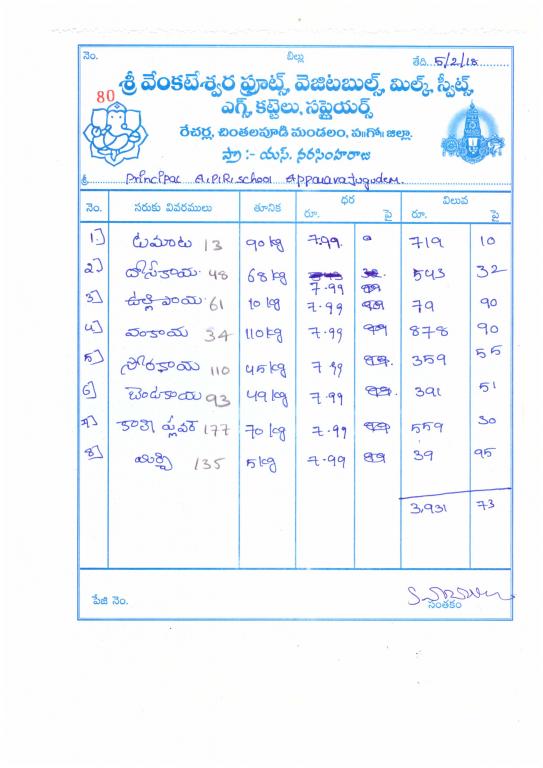 నెం. బిల్లు తేది 5/2/18
80
శ్రీ వేంకటేశ్వర ఫ్రూట్స్, వెజిటబుల్స్, మిల్క్, స్వీట్స్,
ఎగ్స్, కట్టెలు, సప్లైయర్స్
రేచర్ల, చింతలపూడి మండలం, ప.గో. జిల్లా.
ప్రొ :- యస్. నరసింహరాజు
శ్రీ Principal A.P.R.school Apparavajugudem.
నెం. సరుకు వివరములు తూనిక ధర విలువ
రూ. పై రూ. పై
1] టమాట 13 90 kg 7.99. 719 10
2] దోసకాయ 48 68 kg 7.99 543 32
3] ఉల్లి పాయ 61 10 kg 7.99 79 90
4] వంకాయ 34 110 kg 7.99 878 90
5] సోరకాయ 110 45 kg 7.99 359 55
6] బెండకాయ 93 49 kg 7.99 391 51
7] 177 70 kg 7.99 559 30
8] మిర్చి 135 5 kg 7.99 39 95
3,931 73
పేజి నెం. సంతకం